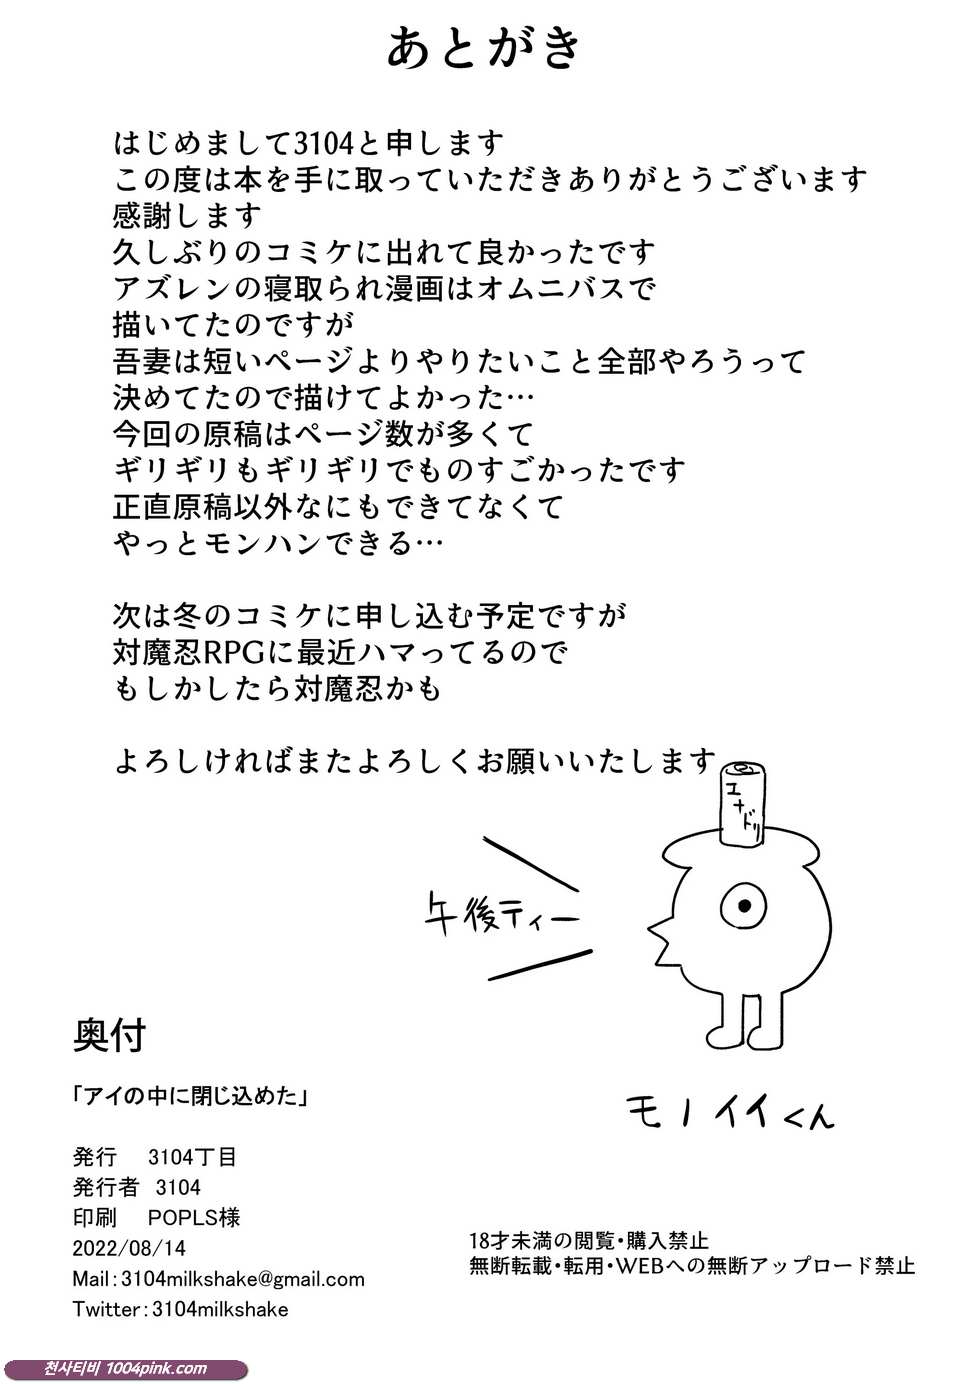 あとがき
はじめまして3104と申します
この度は本を手に取っていただきありがとうございます
感謝します
久しぶりのコミケに出れて良かったです
アズレンの寝取られ漫画はオムニバスで
描いてたのですが
吾妻は短いページよりやりたいこと全部やろうって
決めてたので描けてよかった…
今回の原稿はページ数が多くて
ギリギリもギリギリでものすごかったです
正直原稿以外なにもできてなくて
やっとモンハンできる…
次は冬のコミケに申し込む予定ですが
対魔忍RPGに最近ハマってるので
もしかしたら対魔忍かも
よろしければまたよろしくお願いいたします
エナドリ
午後ティー
モノイイくん
奥付
「アイの中に閉じ込めた」
発行 3104丁目
発行者 3104
印刷 POPLS様
2022/08/14
Mail：3104milkshake@gmail.com
Twitter：3104milkshake
18才未満の閲覧・購入禁止
無断転載・転用・WEBへの無断アップロード禁止
천사티비 1004pink.com